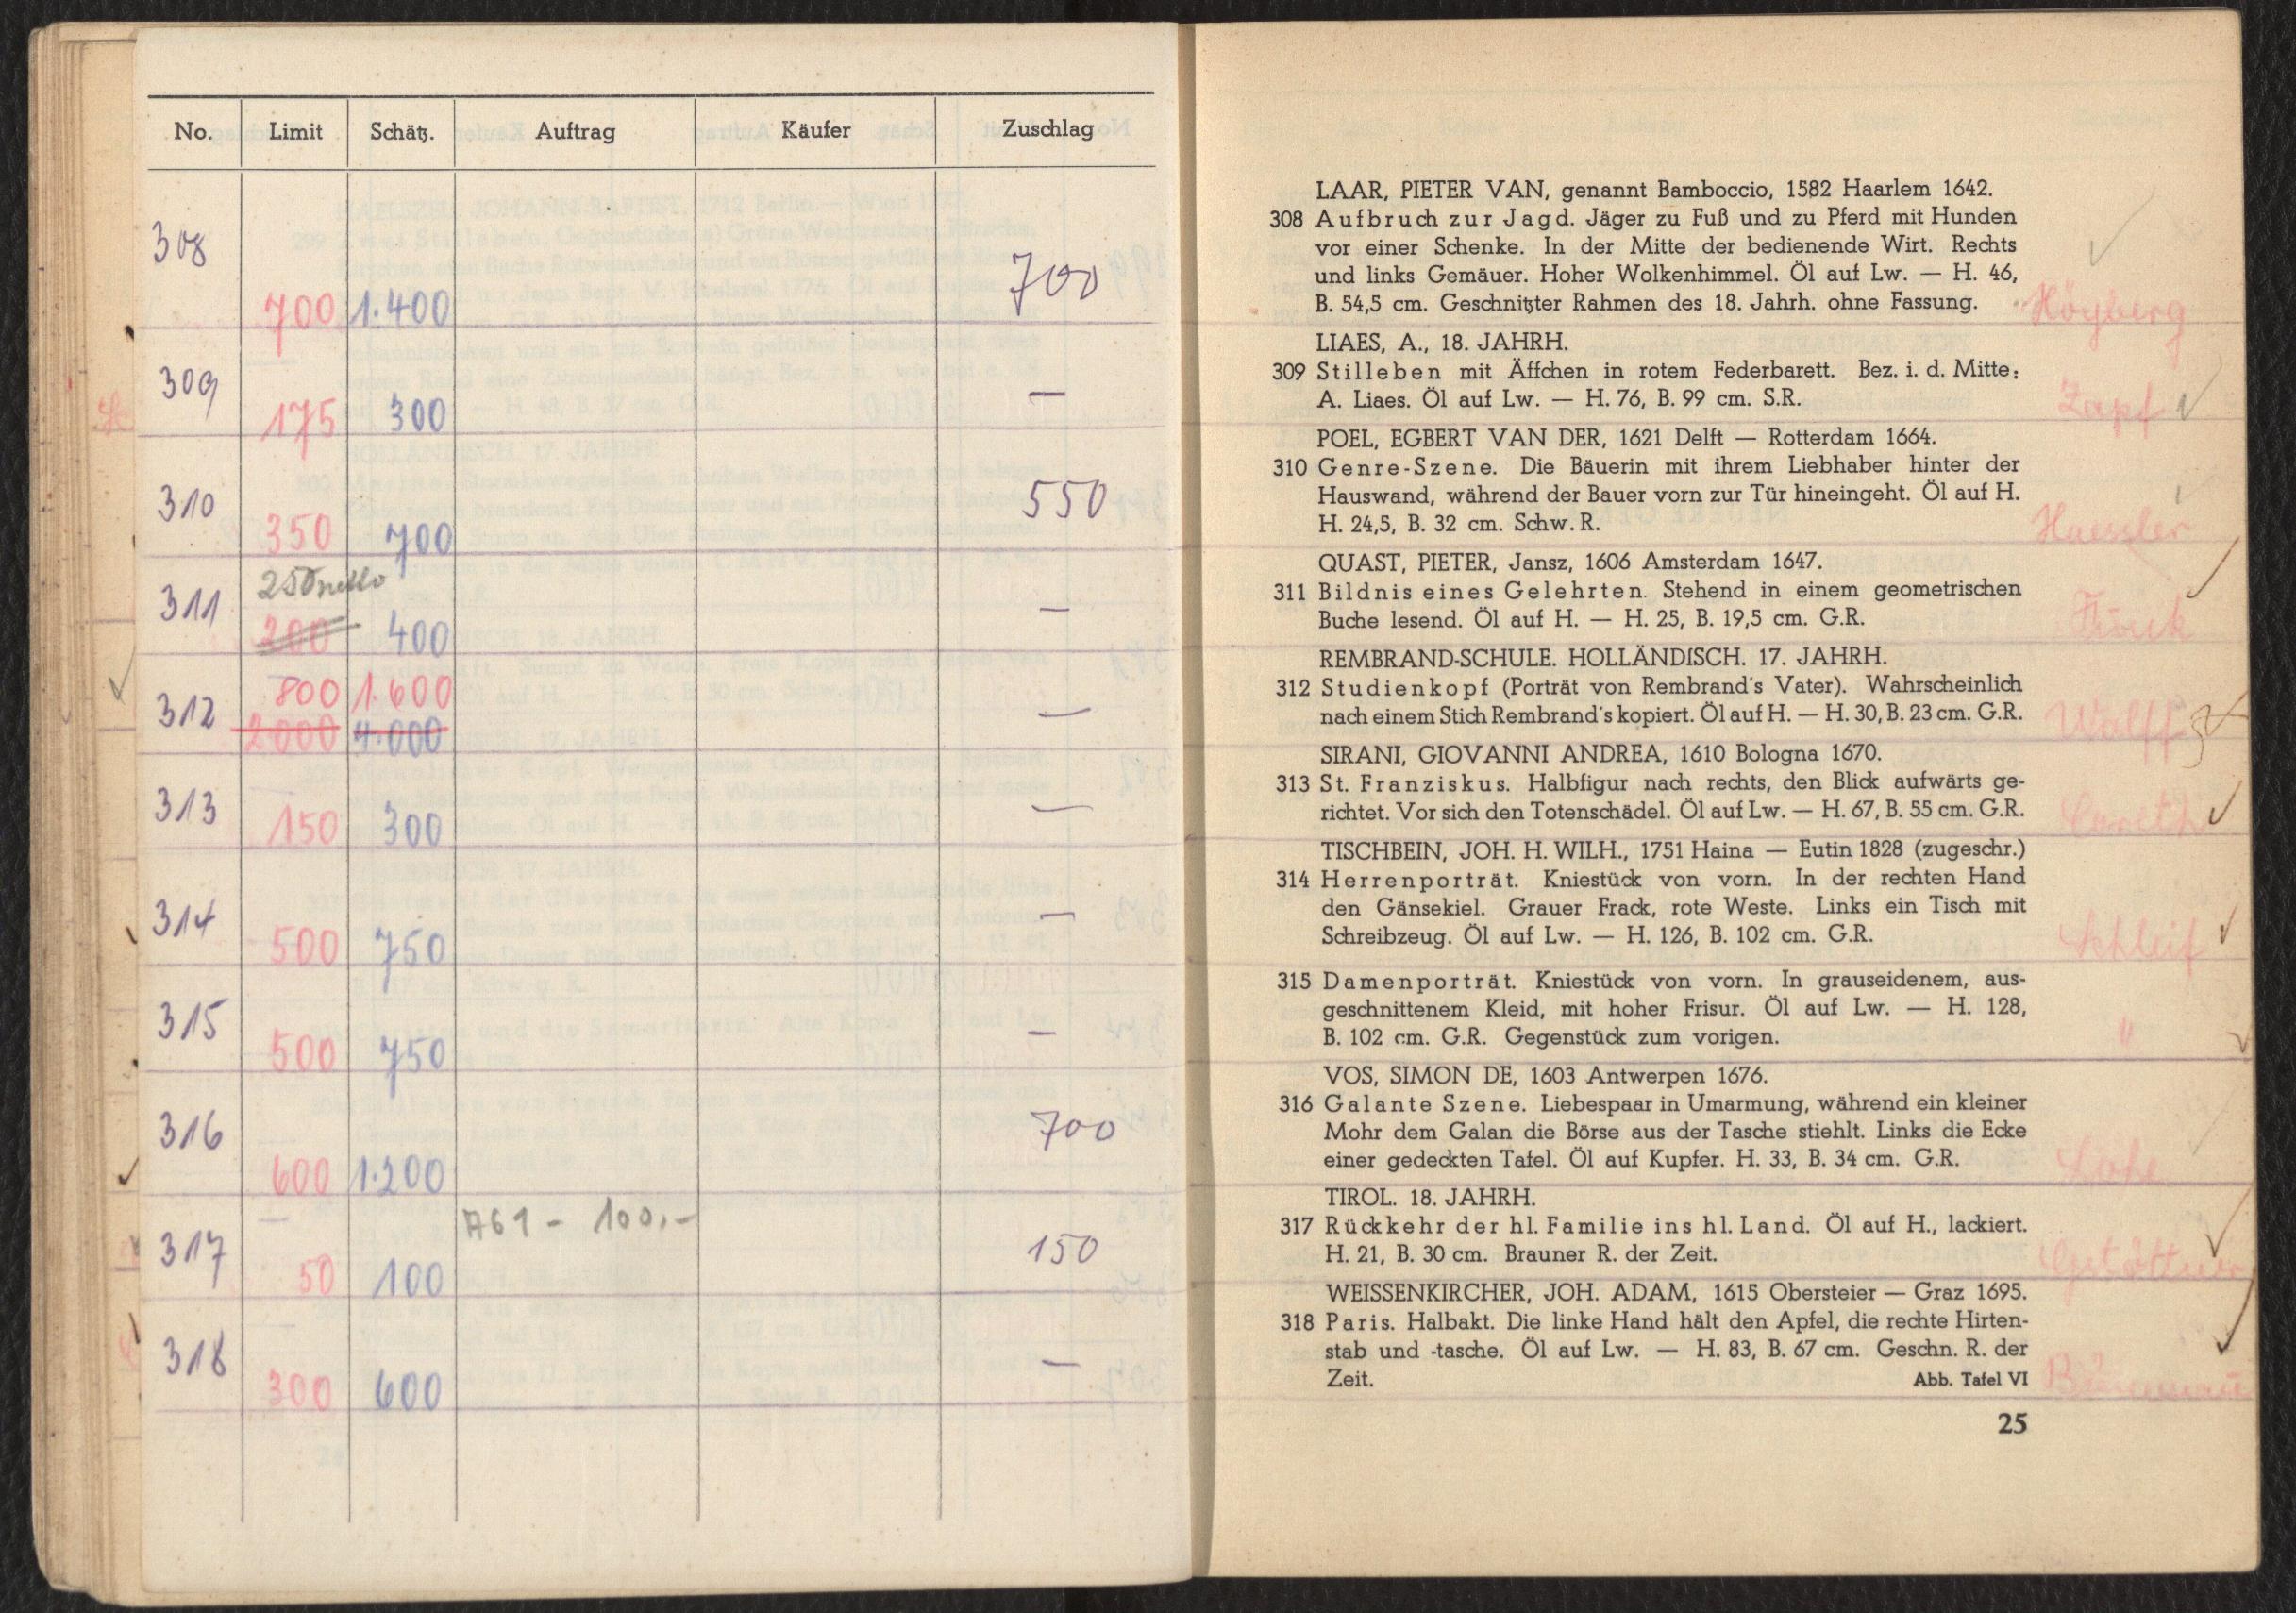 No. Limit Schätz. Auftrag Käufer Zuschlag
308 700 1.400 700
309 175 300 —
310 350 700 550
311 250 netto 200 400 —
312 800 1.600 2000 4.000 —
313 150 300 —
314 500 750 —
315 500 750 —
316 600 1.200 700
317 50 100 A61 - 100,- 150
318 300 600 —
LAAR, PIETER VAN, genannt Bamboccio, 1582 Haarlem 1642.
308 Aufbruch zur Jagd. Jäger zu Fuß und zu Pferd mit Hunden
vor einer Schenke. In der Mitte der bedienende Wirt. Rechts
und links Gemäuer. Hoher Wolkenhimmel. Öl auf Lw. — H. 46,
B. 54,5 cm. Geschnitzter Rahmen des 18. Jahrh. ohne Fassung.
Höyberg
LIAES, A., 18. JAHRH.
309 Stilleben mit Äffchen in rotem Federbarett. Bez. i. d. Mitte:
A. Liaes. Öl auf Lw. — H. 76, B. 99 cm. S.R.
Zapf
POEL, EGBERT VAN DER, 1621 Delft — Rotterdam 1664.
310 Genre-Szene. Die Bäuerin mit ihrem Liebhaber hinter der
Hauswand, während der Bauer vorn zur Tür hineingeht. Öl auf H.
H. 24,5, B. 32 cm. Schw. R.
Haessler
QUAST, PIETER, Jansz, 1606 Amsterdam 1647.
311 Bildnis eines Gelehrten. Stehend in einem geometrischen
Buche lesend. Öl auf H. — H. 25, B. 19,5 cm. G.R.
REMBRAND-SCHULE. HOLLÄNDISCH. 17. JAHRH.
312 Studienkopf (Porträt von Rembrand's Vater). Wahrscheinlich
nach einem Stich Rembrand's kopiert. Öl auf H. — H. 30, B. 23 cm. G.R.
Wolff
SIRANI, GIOVANNI ANDREA, 1610 Bologna 1670.
313 St. Franziskus. Halbfigur nach rechts, den Blick aufwärts ge-
richtet. Vor sich den Totenschädel. Öl auf Lw. — H. 67, B. 55 cm. G.R.
Coreth
TISCHBEIN, JOH. H. WILH., 1751 Haina — Eutin 1828 (zugeschr.)
314 Herrenporträt. Kniestück von vorn. In der rechten Hand
den Gänsekiel. Grauer Frack, rote Weste. Links ein Tisch mit
Schreibzeug. Öl auf Lw. — H. 126, B. 102 cm. G.R.
Schleif
315 Damenporträt. Kniestück von vorn. In grauseidenem, aus-
geschnittenem Kleid, mit hoher Frisur. Öl auf Lw. — H. 128,
B. 102 cm. G.R. Gegenstück zum vorigen.
"
VOS, SIMON DE, 1603 Antwerpen 1676.
316 Galante Szene. Liebespaar in Umarmung, während ein kleiner
Mohr dem Galan die Börse aus der Tasche stiehlt. Links die Ecke
einer gedeckten Tafel. Öl auf Kupfer. H. 33, B. 34 cm. G.R.
TIROL. 18. JAHRH.
317 Rückkehr der hl. Familie ins hl. Land. Öl auf H., lackiert.
H. 21, B. 30 cm. Brauner R. der Zeit.
WEISSENKIRCHER, JOH. ADAM, 1615 Obersteier — Graz 1695.
318 Paris. Halbakt. Die linke Hand hält den Apfel, die rechte Hirten-
stab und -tasche. Öl auf Lw. — H. 83, B. 67 cm. Geschn. R. der
Zeit. Abb. Tafel VI
25